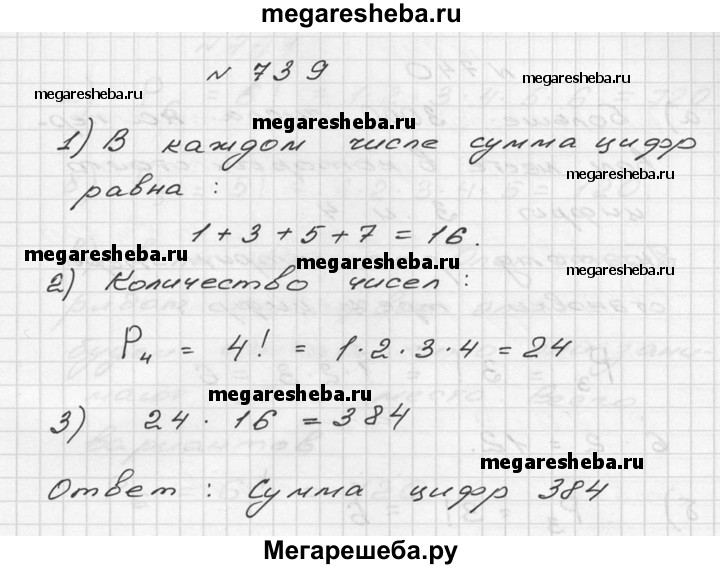 megaresheba.ru
№ 739
megaresheba.ru
megaresheba.ru
megaresheba.ru
1) В каждом числе сумма цифр
равна :
megaresheba.ru
1 + 3 + 5 + 7 = 16.
megaresheba.ru
megaresheba.ru
megaresheba.ru
2) Количество чисел :
P₄ = 4! = 1·2·3·4 = 24
megaresheba.ru
3) 24 · 16 = 384
megaresheba.ru
Ответ : Сумма цифр 384
Мегарешеба.ру